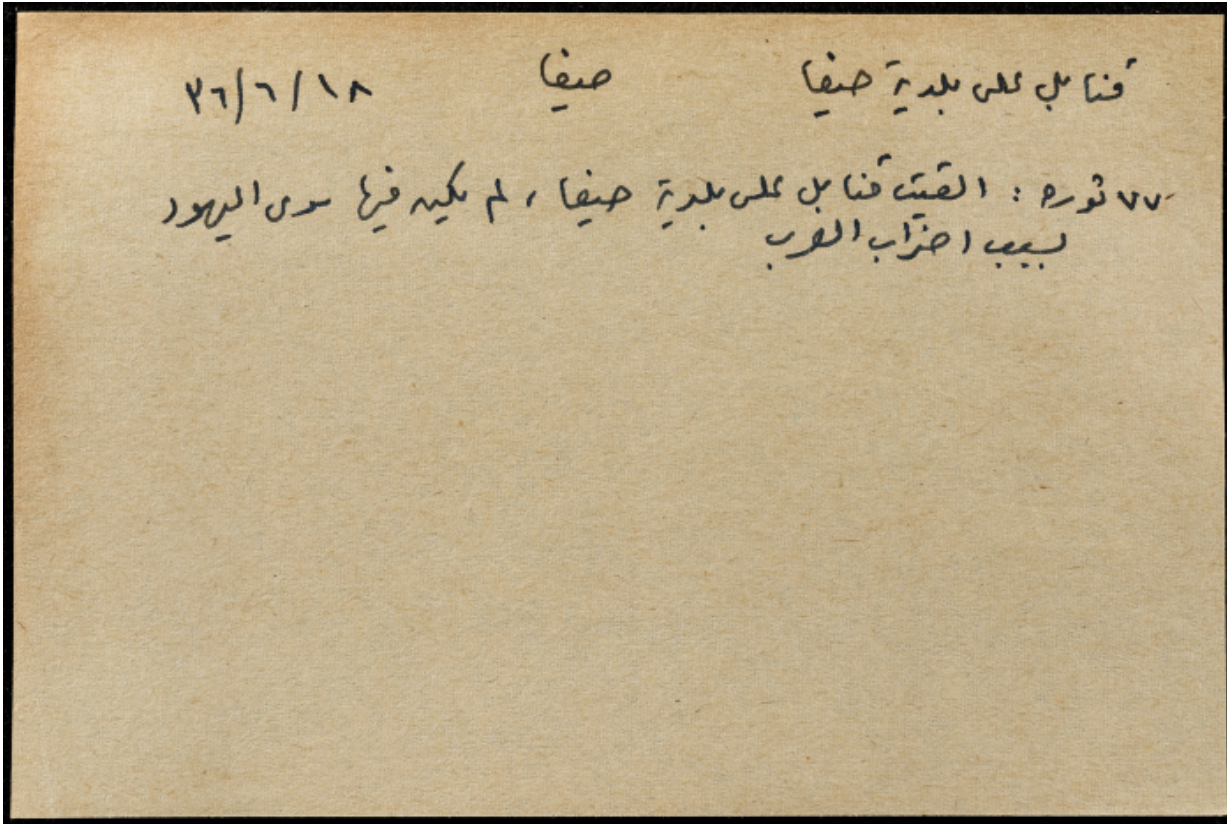 قنابل على بلدية حيفا حيفا ٣٦/٦/١٨
٧٧ ثورة : القيت قنابل على بلدية حيفا ، لم يكن فيها سوى اليهود
بسبب اضراب العرب